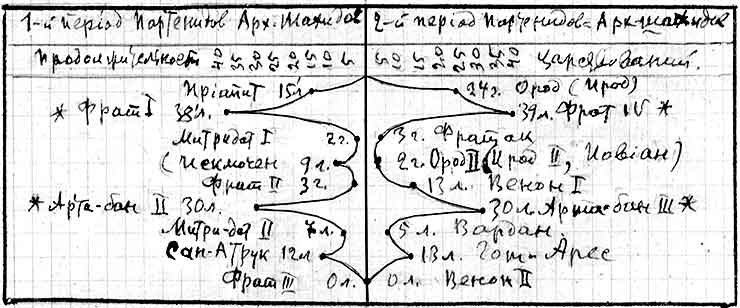 1-й період Портенидов Арх. Шахидов
2-й період Портенидов = Арх-шахидов
Продолжительность 40 35 30 25 20 15 10 5
5 10 15 20 25 30 35 40 Царствований.
Пріапит 15 л.
24 г. Ород (Ирод)
* Фрат I 38 л.
39 л. Фрат IV *
Митридат I 2 г.
3 г. Фратак
9 л.
2 г. Ород II (Ирод II, Иовіан)
Фрат II 3 г.
13 л. Венон I
* Арта-бан II 30 л.
30 л. Арта-бан III *
Митри-дат II 7 л.
5 л. Вардан.
Сан-Атрук 12 л.
13 л. Гот-Арес
Фрат III 0 л.
0 л. Венон II